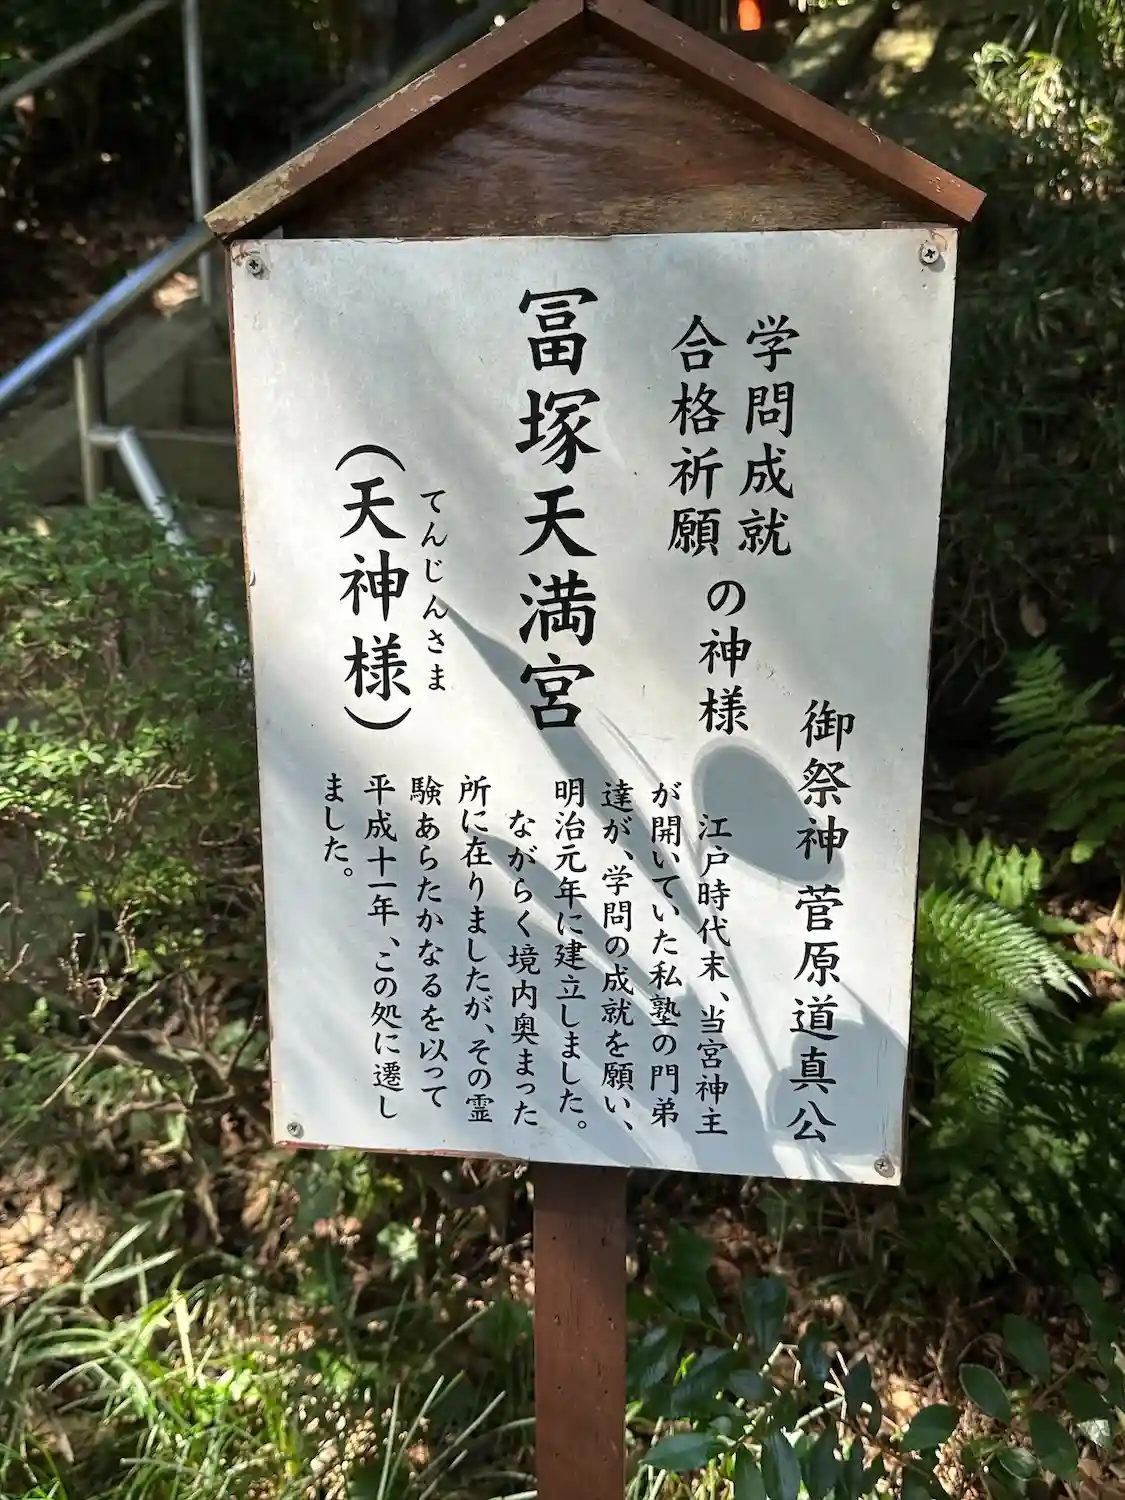 御祭神 菅原道真公
学問成就
合格祈願
の神様
冨塚天満宮
てんじんさま
（天神様）
江戸時代末、当宮神主
が開いていた私塾の門弟
達が、学問の成就を願い、
明治元年に建立しました。
ながらく境内奥まった
所に在りましたが、その霊
験あらたかなるを以って
平成十一年、この処に遷し
ました。